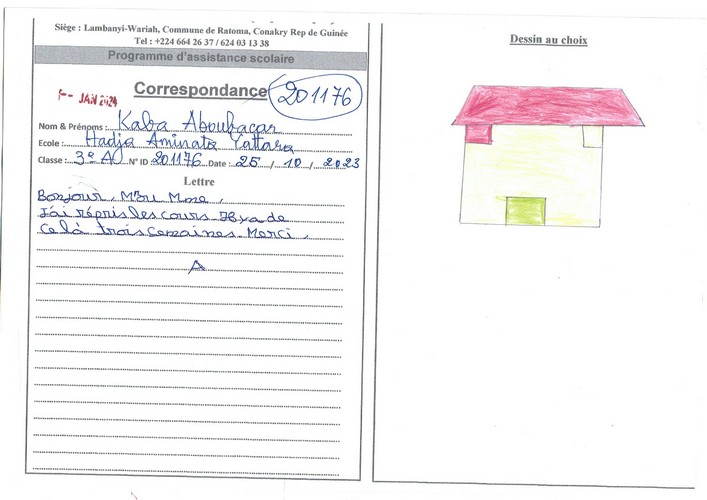 Siège : Lambanyi-Wariah, Commune de Ratoma, Conakry Rep de Guinée
Tel : +224 664 26 37 / 624 03 13 38
Programme d'assistance scolaire
Correspondance
201176
JAN 2024
Nom & Prénoms : Kaba Aboubacar
Ecole : Hadja Aminata Yattara
Classe : 3e A N° ID 201176 Date : 25 / 10 / 2023
Lettre
Bonjour, Mr ou Mme,
J'ai répris les cours Il y a de
Ce là trois Semaines Merci,
A
Dessin au choix